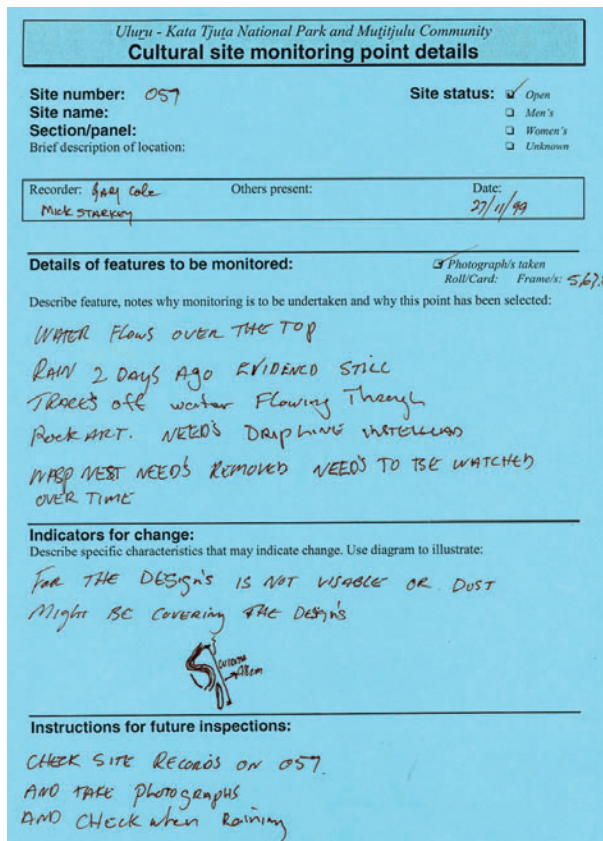 Uluṟu - Kata Tjuṯa National Park and Muṯitjulu Community
Cultural site monitoring point details
Site number: 057
Site status: Open
Site name:
Men's
Section/panel:
Women's
Brief description of location:
Unknown
Recorder: Gary Cole
Others present:
Date:
Mick STARKEY
27/11/99
Details of features to be monitored:
Photograph/s taken
Roll/Card: Frame/s: 5,6,7,8
Describe feature, notes why monitoring is to be undertaken and why this point has been selected:
WATER Flows OVER THE TOP
RAIN 2 DAYS Ago EVIDENCD STILL
TRACES off water Flowing Through
ROCK ART. NEED'S DRIPLINE INSTELLAD
WASP NEST NEED'S REMOVED NEED'S TO BE WATCHED
OVER TIME
Indicators for change:
Describe specific characteristics that may indicate change. Use diagram to illustrate:
FOR THE DESIGN'S IS NOT VISABLE OR DUST
Might BE COVERING THE DESIGN'S
Instructions for future inspections:
CHECK SITE RECORDS ON 057
AND TAKE Photographs
AND CHECK when Raining